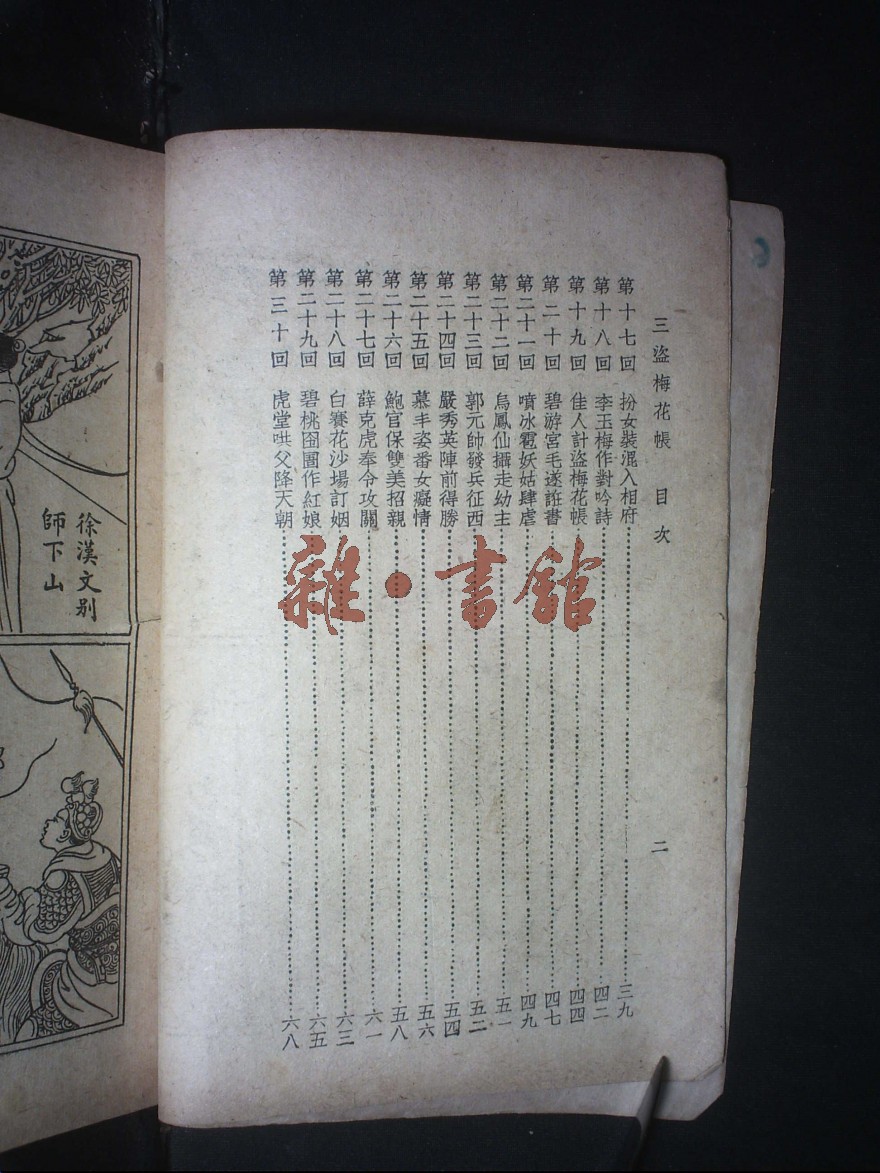 三盜梅花帳 目次 二
第十七回 扮女裝混入相府 三九
第十八回 李玉梅作對吟詩 四二
第十九回 佳人計盜梅花帳 四四
第二十回 碧游宮毛遂誑書 四七
第二十一回 噴冰雹妖姑肆虐 四九
第二十二回 烏鳳仙攝走幼主 五一
第二十三回 郭元帥發兵征西 五二
第二十四回 嚴秀英陣前得勝 五四
第二十五回 慕丰姿番女癡情 五六
第二十六回 鮑官保雙美招親 五八
第二十七回 薛克虎奉令攻關 六一
第二十八回 白賽花沙場訂姻 六三
第二十九回 碧桃囹圄作紅娘 六五
第三十回 虎堂哄父降天朝 六八
徐漢文別
師下山
雜·書館